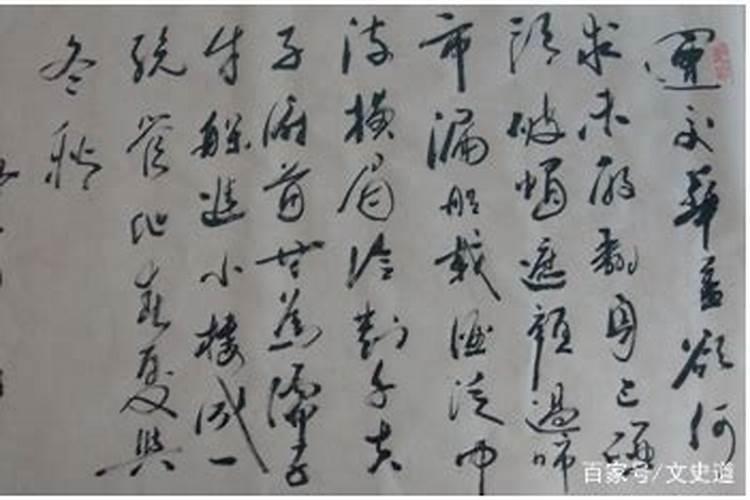 運交華蓋欲何
求未敢翻身已碰
頭破帽遮顏過鬧
市漏船載酒泛中
流橫眉冷對千夫
俯首甘為孺子
牛躲進小樓成一
統管他春夏與
冬秋
百家号/文史道